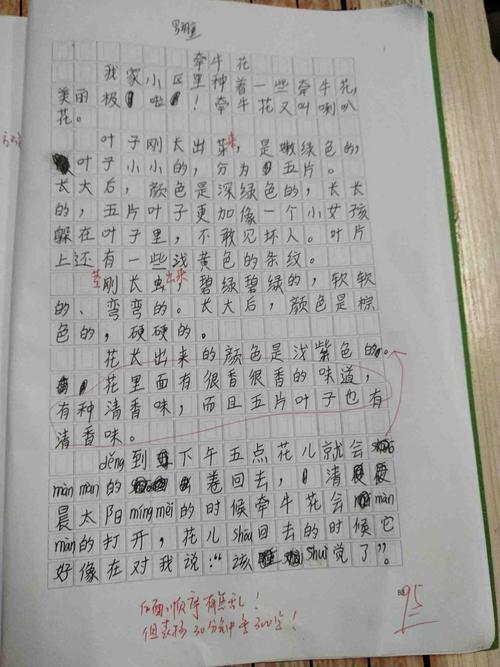 牵牛花
我家小区里种着一些牵牛花,
美丽极啦!牵牛花又叫喇叭
花。
叶子刚长出芽来,是嫩绿色的,
叶子小小的,分为五片。
长大后,颜色是深绿色的,长长
的,五片叶子更加像一个小女孩
躲在叶子里,不敢见坏人。叶片
上还有一些浅黄色的条纹。
茎刚长出来,碧绿碧绿的,软软
的、弯弯的。长大后,颜色是棕
色的,硬硬的。
花长出来的颜色是浅紫色的。
花里面有很香很香的味道,
有种清香味,而且五片叶子也有
清香味。
děng到下午五点花儿就会
màn màn的卷回去,清
晨太阳míng mèi的时候牵牛花会màn
màn的打开,花儿shōu回去的时候它
好像在对我说:“该shuì觉了”。
后面顺序有点乱!
但表扬30分钟写300字!
95